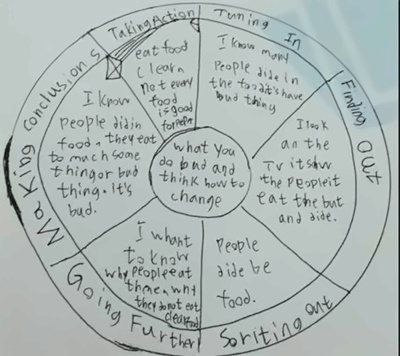 Tuning In
I know many
People dide in
the food. it's have
bud thing
Finding Out
I look
an the
Tv it show
the People it
eat the but
and dide.
Sorliting out
People
dide be
food.
Going Further
I whant
to know
why people eat
them. why
they do not eat
clean food
Making Conclusions
I know
people did in
food. they eat
to much some
thing or bud
thing. It's
bud.
Taking Action
eat food
clean
not every
food
is good
for
what you
do bud and
think how to
change